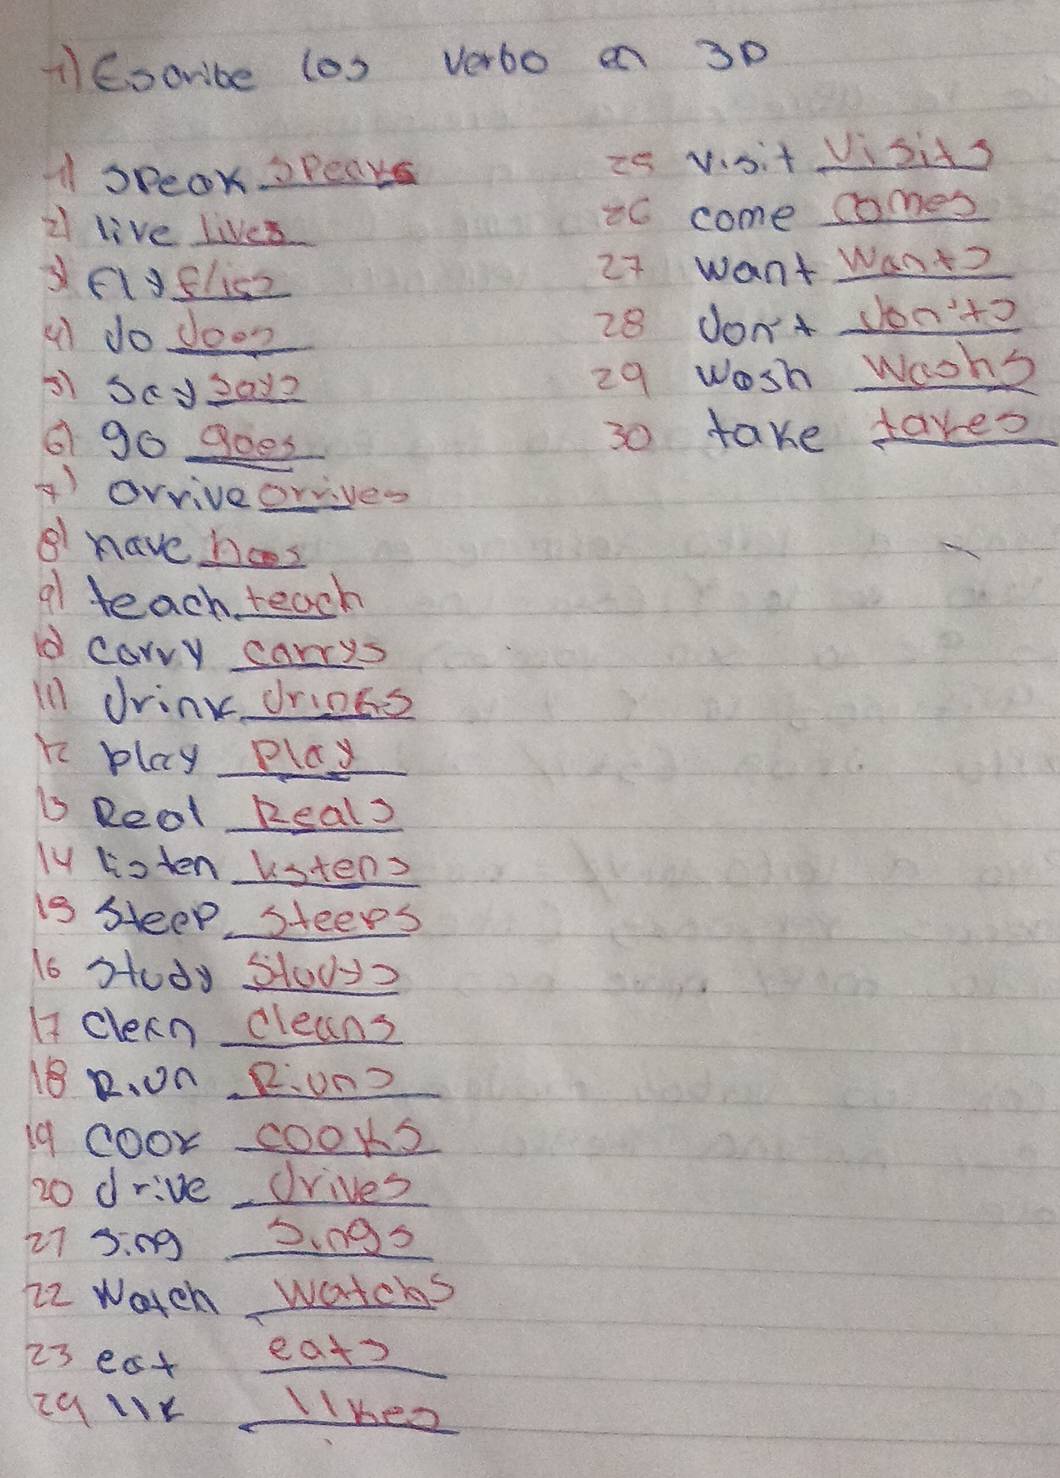 1) Escribe los verbo en 3D
1) speak speaks
2) live lives
3) fly flies
4) do does
5) say says
6) go goes
7) arrive arrives
8) have has
9) teach teach
10 carry carrys
11) drink drinks
12 play play
13 Read Reads
14 listen listens
15 sleep sleeps
16 study studys
17 clean cleans
18 Run Runs
19 cook cooks
20 drive drives
21 sing sings
22 Watch Watchs
23 eat eats
24 lik likes
25 visit visits
26 come comes
27 want wants
28 don't don'ts
29 wash washs
30 take takes